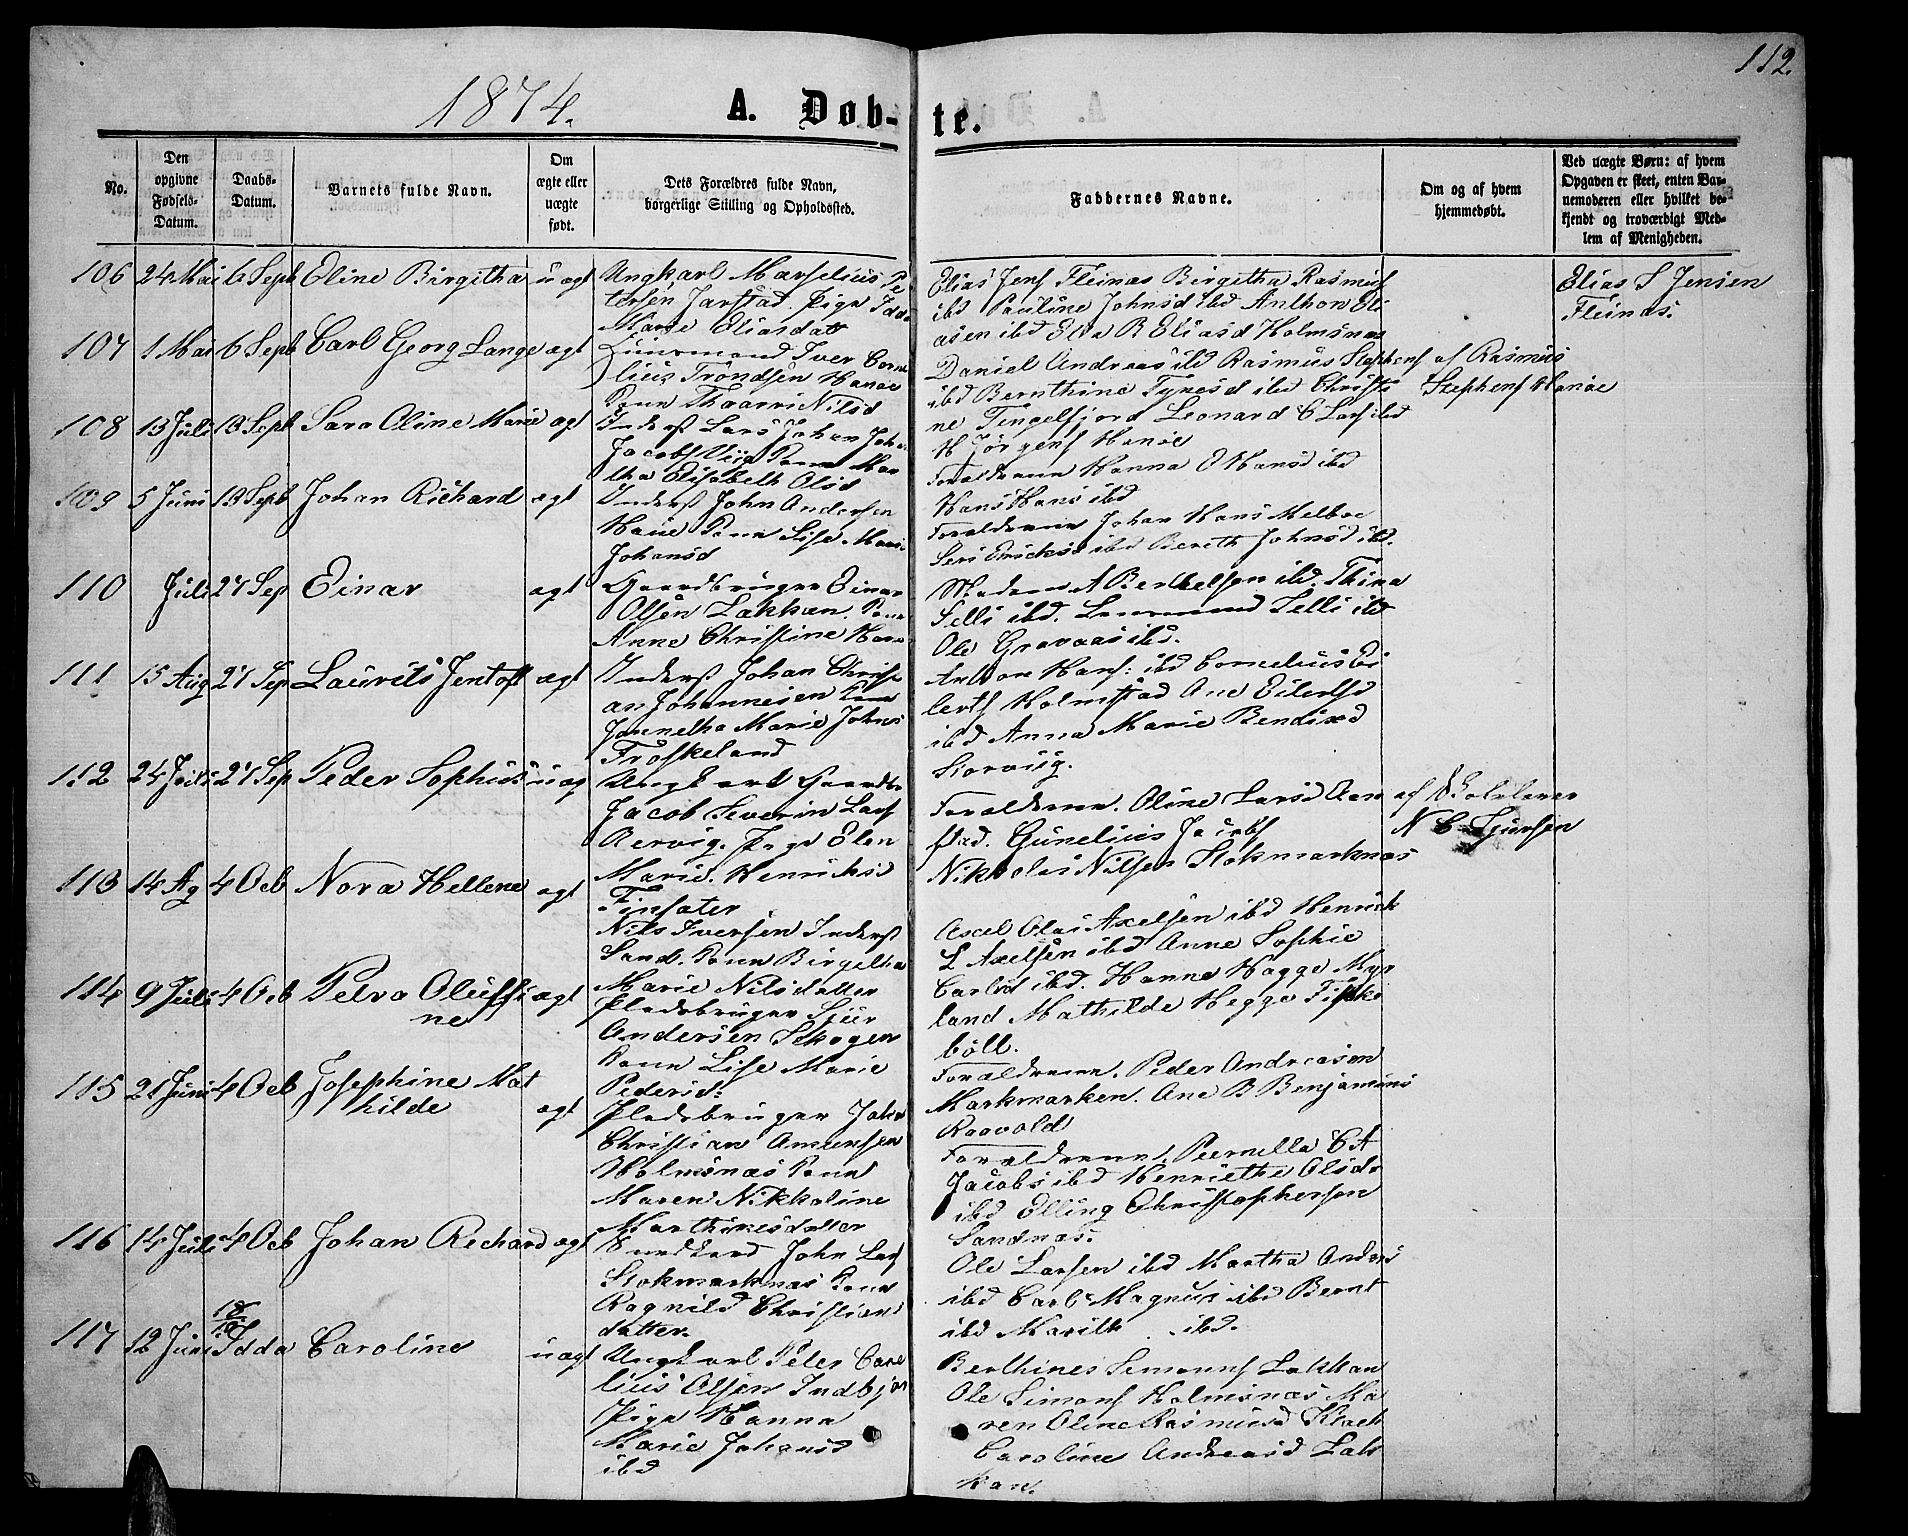 112.
1874.
A. Døb-te.
No.
Den opgivne Fødsels-Datum.
Daabs-Datum.
Barnets fulde Navn.
Om ægte eller uægte født.
Dets Forældres fulde Navn, borgerlige Stilling og Opholdssted.
Faddernes Navne.
Om og af hvem hjemmedøbt.
Ved uægte Børn: af hvem Opgaven er skeet, enten Barnemoderen eller hvilket bekjendt og troværdigt Medlem af Menigheden.
106 24 Mai 6 Sept Eline Birgitha uægt
Ungkarl Marselius Pe
tersen Jarstad Pige Idda
Marie Eliasdatt
Elias Jens Fleinæs Birgitha Rasmus
ibd Pauline Johnsd ibd Anthon Eli
asen ibd Elea R Eliasd Holmsnæs
Elias S Jensen
Fleinæs.
107 1 Mai 6 Sept Carl Georg Lange ægt
Huusmand Iver Corne
lius Trondsen Hanøe
Kone Nilsd
Daniel Andreas ibd Rasmus Stephens
ibd Bernthine ibd Christi
ne Tengelfjord Leonard C Lars ibd
H Jörgens Hanøe
af Rasmus
Stephens Hanøe
108 13 Juli 13 Sept Sara Oline Marie ægt
Inderst Lars Johan
Jacobs Kone Mar
tha Elisabeth Olsd
Forældrene Hanna O Hansd ibd
Hans Hans ibd
109 5 Juni 13 Sept Johan Richard ægt
Inderst John Andersen
Kone Lise Marie
Johansd
Forældrene Johan Hans Melboe
Seri Ericksd ibd Bereth Johnsd ibd.
110 Juli 27 Sep Einar ægt
Gaardbruger Einar
Olsen Lakkæn. Kone
Anne Christine
Madam A Berthelsen ibd. Thina
Selli ibd. Selli ibd
Ole Gravaas ibd.
111 15 Aug 27 Sep Laurits Jentoft ægt
Inderst Johan Christi
an Johannesen Kone
Jonnetha Marie Johns
Froskeland
Anton Hans: ibd Cornelius Ei
lerts Holmstad Ane Eilertsd
ibd Anna Marie Bendixsd
112 24 Juli 27 Sep Peder Sophus uæg
Ungkarl Gaardbr
Jacob Severin Lars
Rervig. Pige Elen
Marie Henriksd
Finsæter
Forældrene. Oline Larsd Aan
stad. Gunelius Jacobs
Nikkolai Nilsen Stokmarknæs
af Skolelærer
N C
113 14 Ag 4 Ocb Nora Hellene ægt
Nils Iversen Inderst
Sand. Kone Birgitha
Marie Nilsdatter
Axel Olai Axelsen ibd Henrick
L Axelsen ibd Anne Sophie
Carlsd ibd. Hanna Hagge Myr
land Mathilde Hegge Fiske
böll.
114 9 Juli 4 Ocb Petra Oluffi ægt
ne
Pladsbruger Sjur
Andersen Skogen
Kone Lise Marie
Pedersd:
Forældrene. Peder Andreasen
Markmarken. Ane B Benjamins
Roovold
115 21 Juni 4 Ocb Josephine Mat
hilde ægt
Pladsbruger Johan
Christian Amunsen
Holmsnæs Kone
Maren Nikkoline
Marthinesdatter
Forældrene. Pernella C A
Jacobs ibd Henriette Olsdt
ibd Elling Christophersen
Sandnæs.
116 14 Juli 4 Ocb Johan Rechard ægt
John Lars
Stokmarknæs Kone
Ragnild Christians
datter.
Ole Larsen ibd Martha Anders
ibd Carl Magnus ibd Bernt
ibd Marith ibd.
117 12 Juni 18/10 Idda Caroline uægt
Ungkarl Peter Corne
lius Olsen Indbjor
Pige Hanna
Marie Johansd
ibd
Berthines Simons Lakkan
Ole Simons Holmsnæs Ma
ren Oline Rasmusd
Caroline Andreasd Lak
kan.